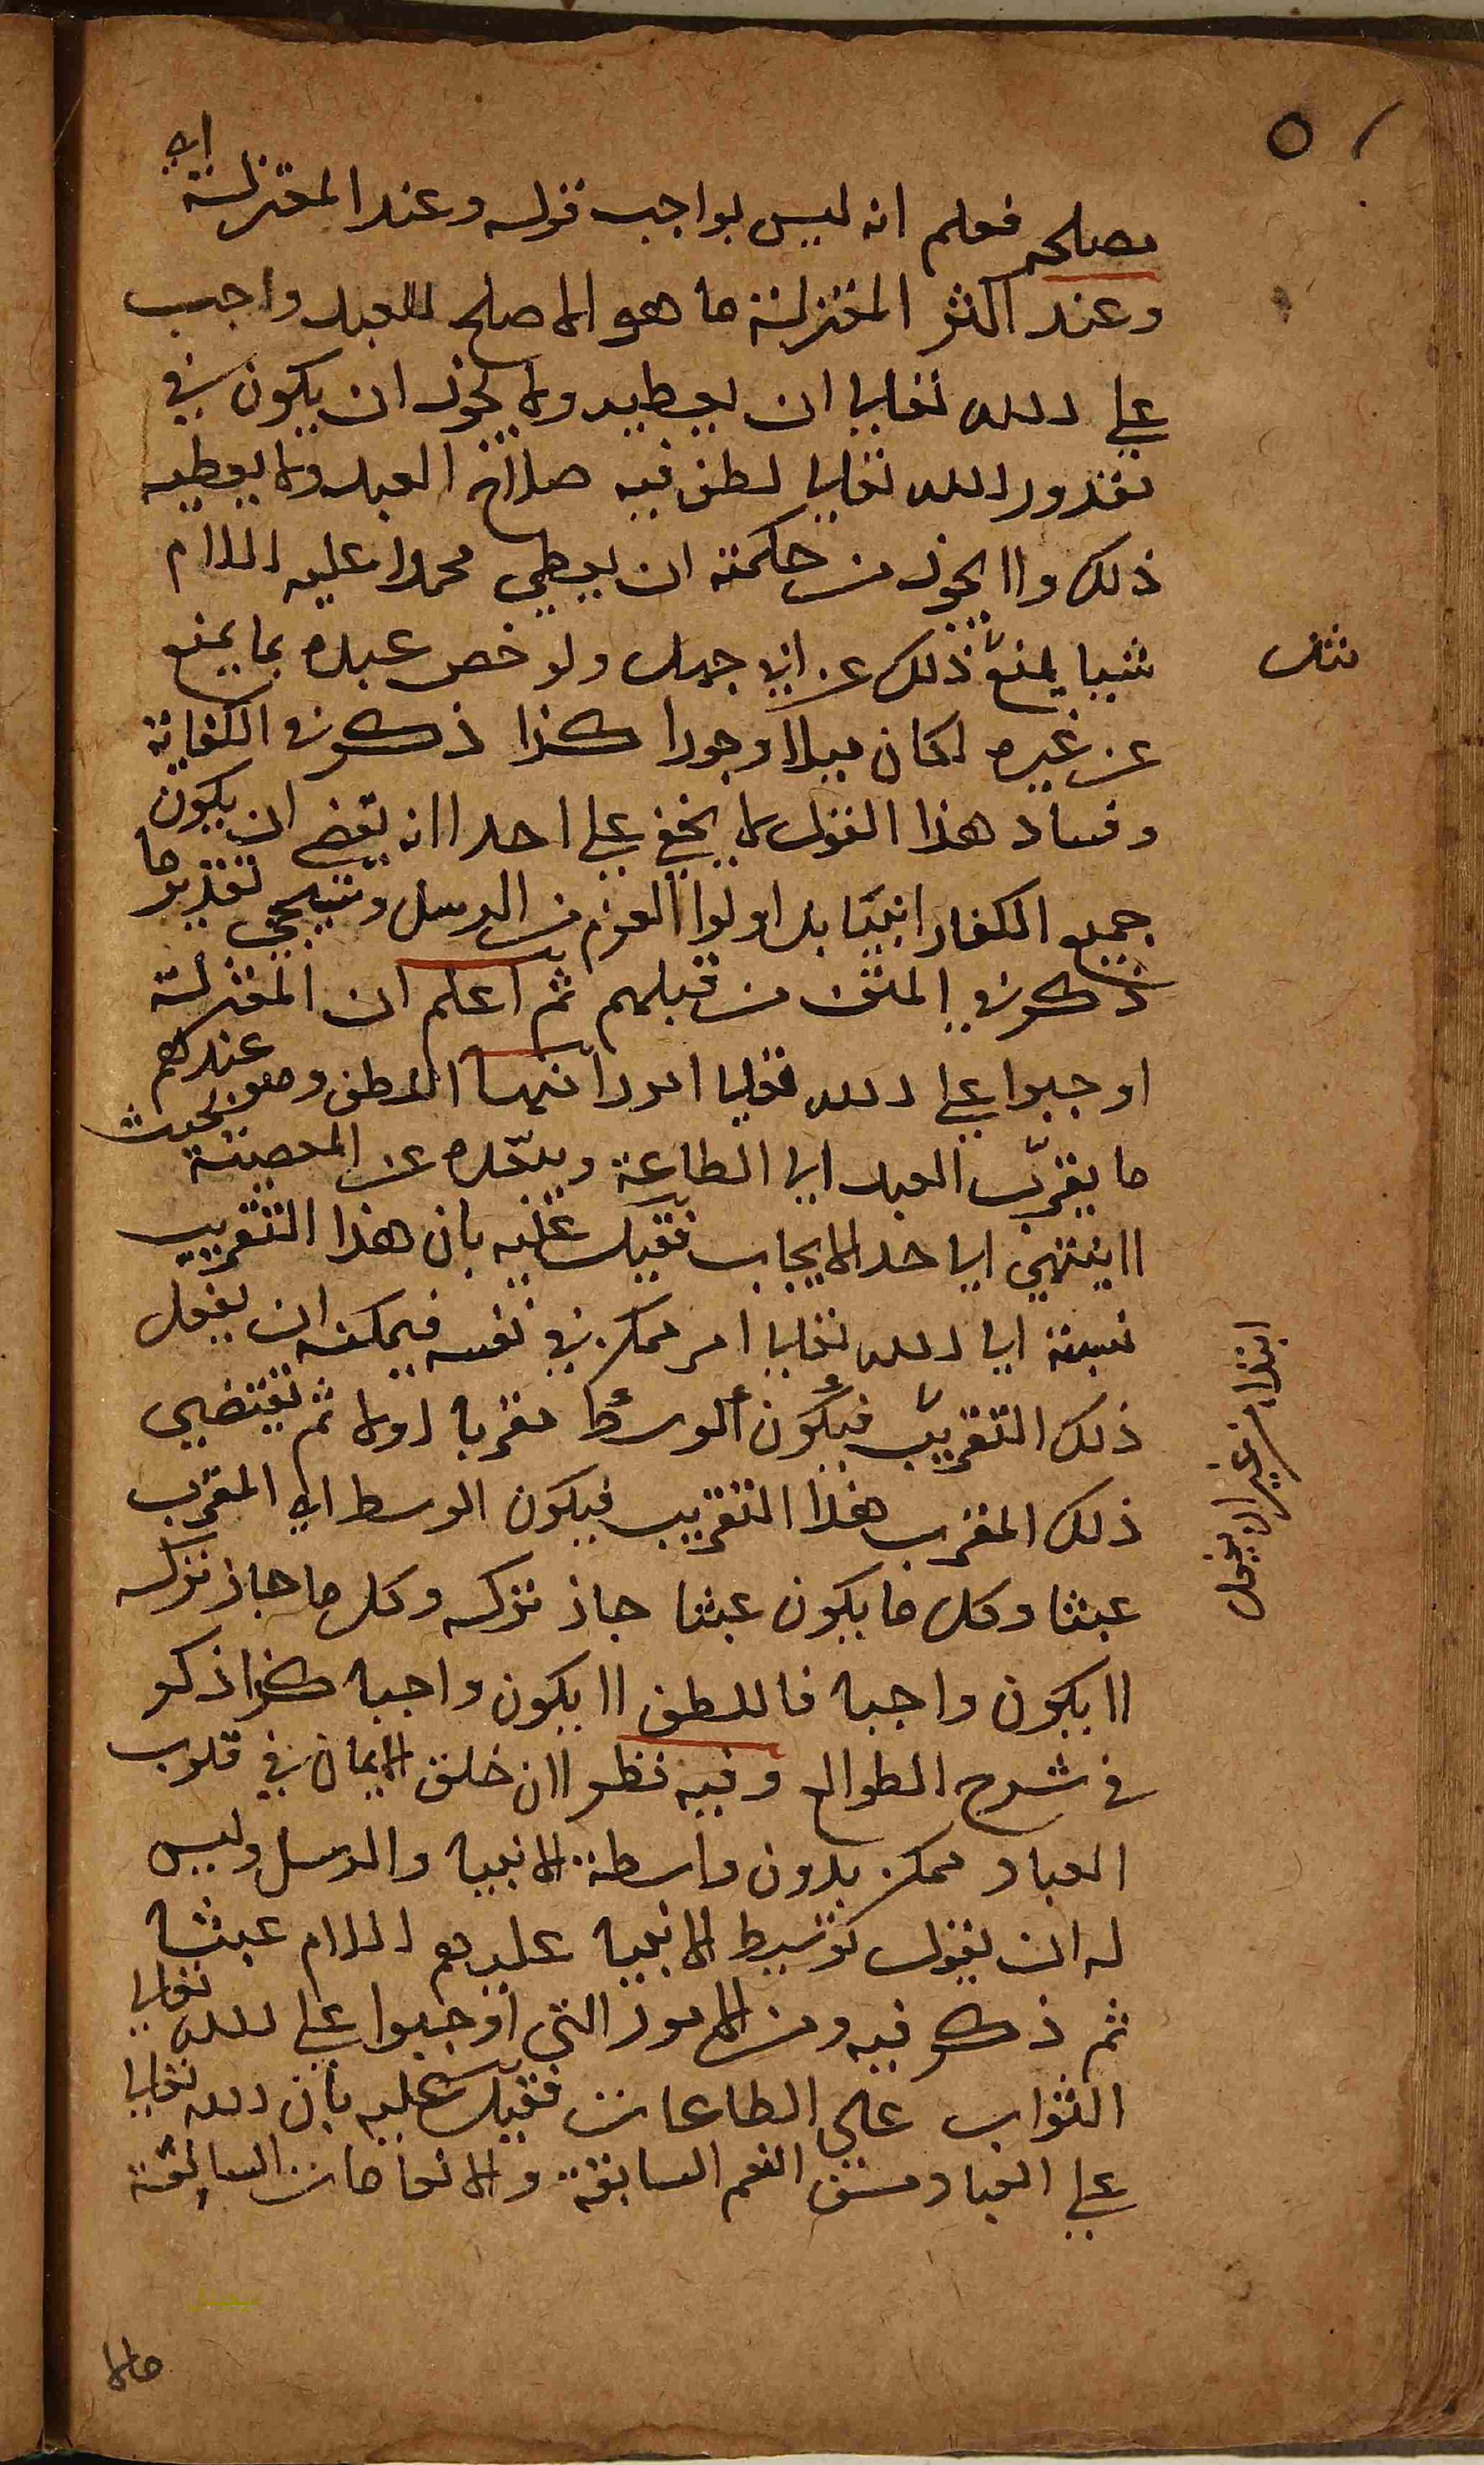 ٥١
مصلحه فعلم انه ليس بواجب قوله وعند المعتزلة اه
وعند اكثر المعتزلة ما هو الاصلح للعبد واجب
على الله تعالى ان يعطيه ولا يجوز ان يكون في
مقدور الله تعالى لطف فيه صلاح العبد ولا يعطيه
ذلك ولا يجوز من حكمته ان يعطي محمدا عليه السلام
شيئا يمنع ذلك عن ابي جهل ولو خص عبده بما يمنع
عن غيره لكان ميلا وجورا كذا ذكر في الكفاية
وفساد هذا القول لا يخفى على احد لانه يقتضي ان يكون
جميع الكفار انبيا بل اولوا العزم من الرسل وسيجي تقدير ما
ذكر في المتن من قبلهم ثم اعلم ان المعتزلة
اوجبوا على الله تعالى امورا منها اللطف وهو عندهم
ما يقرّب العبد الى الطاعة ويبعّده عن المعصية بحيث
لا ينتهي الى حد الايجاب فقيل عليه بان هذا التقريب
نسبته الى الله تعالى امر ممكن في نفسه فيمكنه ان يفعل
ذلك التقريب فيكون الوسط مقربا اولا ثم يقتضي
ذلك المقرب هذا التقريب فيكون الوسط اي المقرب
عبثا وكل ما يكون عبثا جاز تركه وكل ما جاز تركه
لا يكون واجبا فاللطف لا يكون واجبا كذا ذكر
في شرح الطوالع وفيه نظر لان خلق الايمان في قلوب
العباد ممكن بدون واسطة الانبيا والرسل وليس
له ان يقول توسيط الانبيا عليهم السلام عبثا
ثم ذكر فيه ومن الامور التي اوجبوا على الله تعالى
الثواب على الطاعات فقيل عليه بان الله تعالى
على العباد من النعم السابقة والانعامات السابقة
مالا
ابتداء من غير ان يفعل